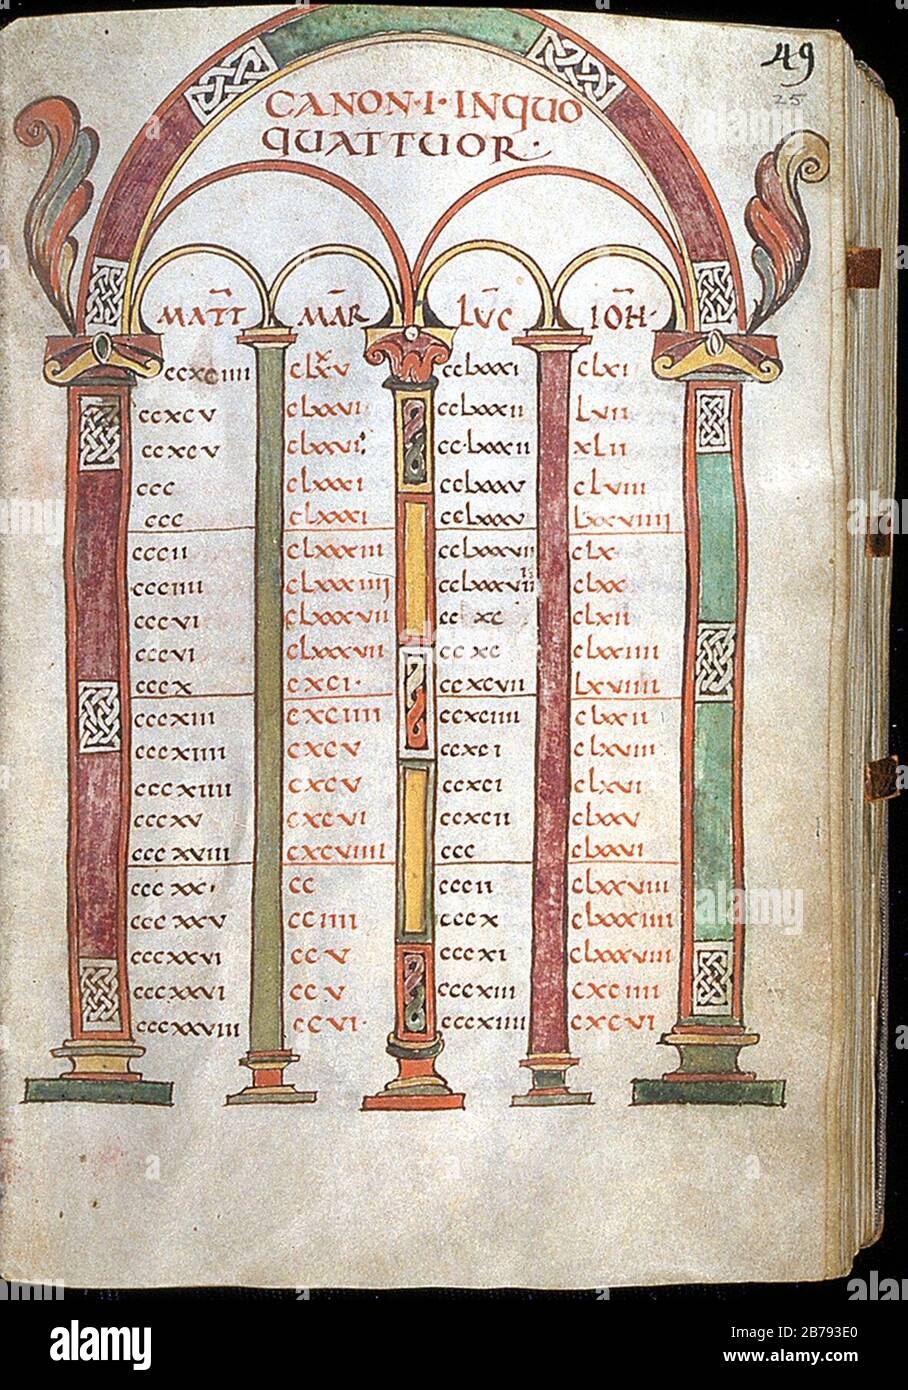 49
25
CANON·I·INQUO
QUATTUOR·
MATT MAR LUC IOH·
ccxciiii clxxv cclxxxi clxi
ccxcv clxxvi cclxxxii lvii
ccxcv clxxvi cc·lxxxii xlii
ccc clxxxi cclxxxv clviii
ccc clxxxi cclxxxv lxxviiii
cccii clxxxiii cclxxxvii clx·
ccciiii clxxxiiii cclxxxvii clxx
cccvi clxxxvii ccxc clxii
cccvi clxxxvii ccxc clxiiii
cccx cxci· ccxcvii lxviiii
cccxiii cxciiii ccxciiii clxxii
cccxiiii cxcv ccxci clxviii
cccxiiii cxcv ccxci clxvi
cccxv cxcvi ccxcii clxxv
cccxviii cxcviiii ccc clxxvi
cccxx· cc cccii clxxviii
cccxxv cciiii cccx clxxxiiii
cccxxvi ccv cccxi clxxxviii
cccxxvi ccv cccxiii cxciiii
cccxxviii ccvi· cccxiiii cxcvi
alamy
Image ID: 2B793E0
www.alamy.com